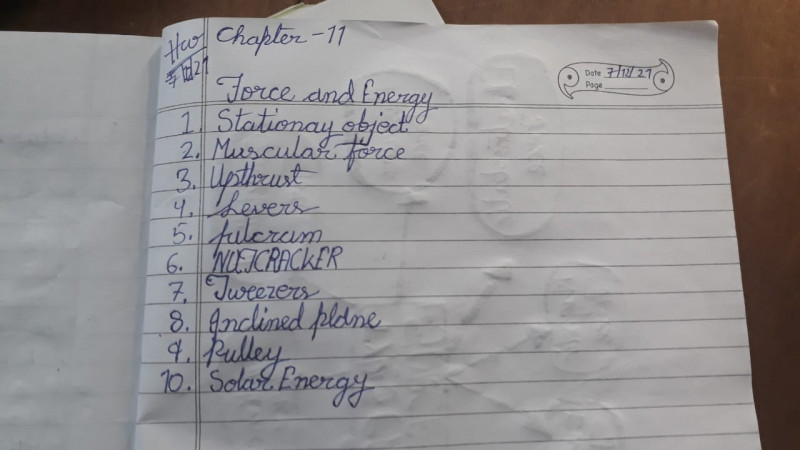 Hw Chapter - 11
7/12/21
Date 7/12/21
Page
Force and Energy
1. Stationay object
2. Muscular force
3. Upthrust
4. Levers
5. fulcrum
6. NUTCRACKER
7. Tweezers
8. Inclined plane
9. Pulley
10. Solar Energy